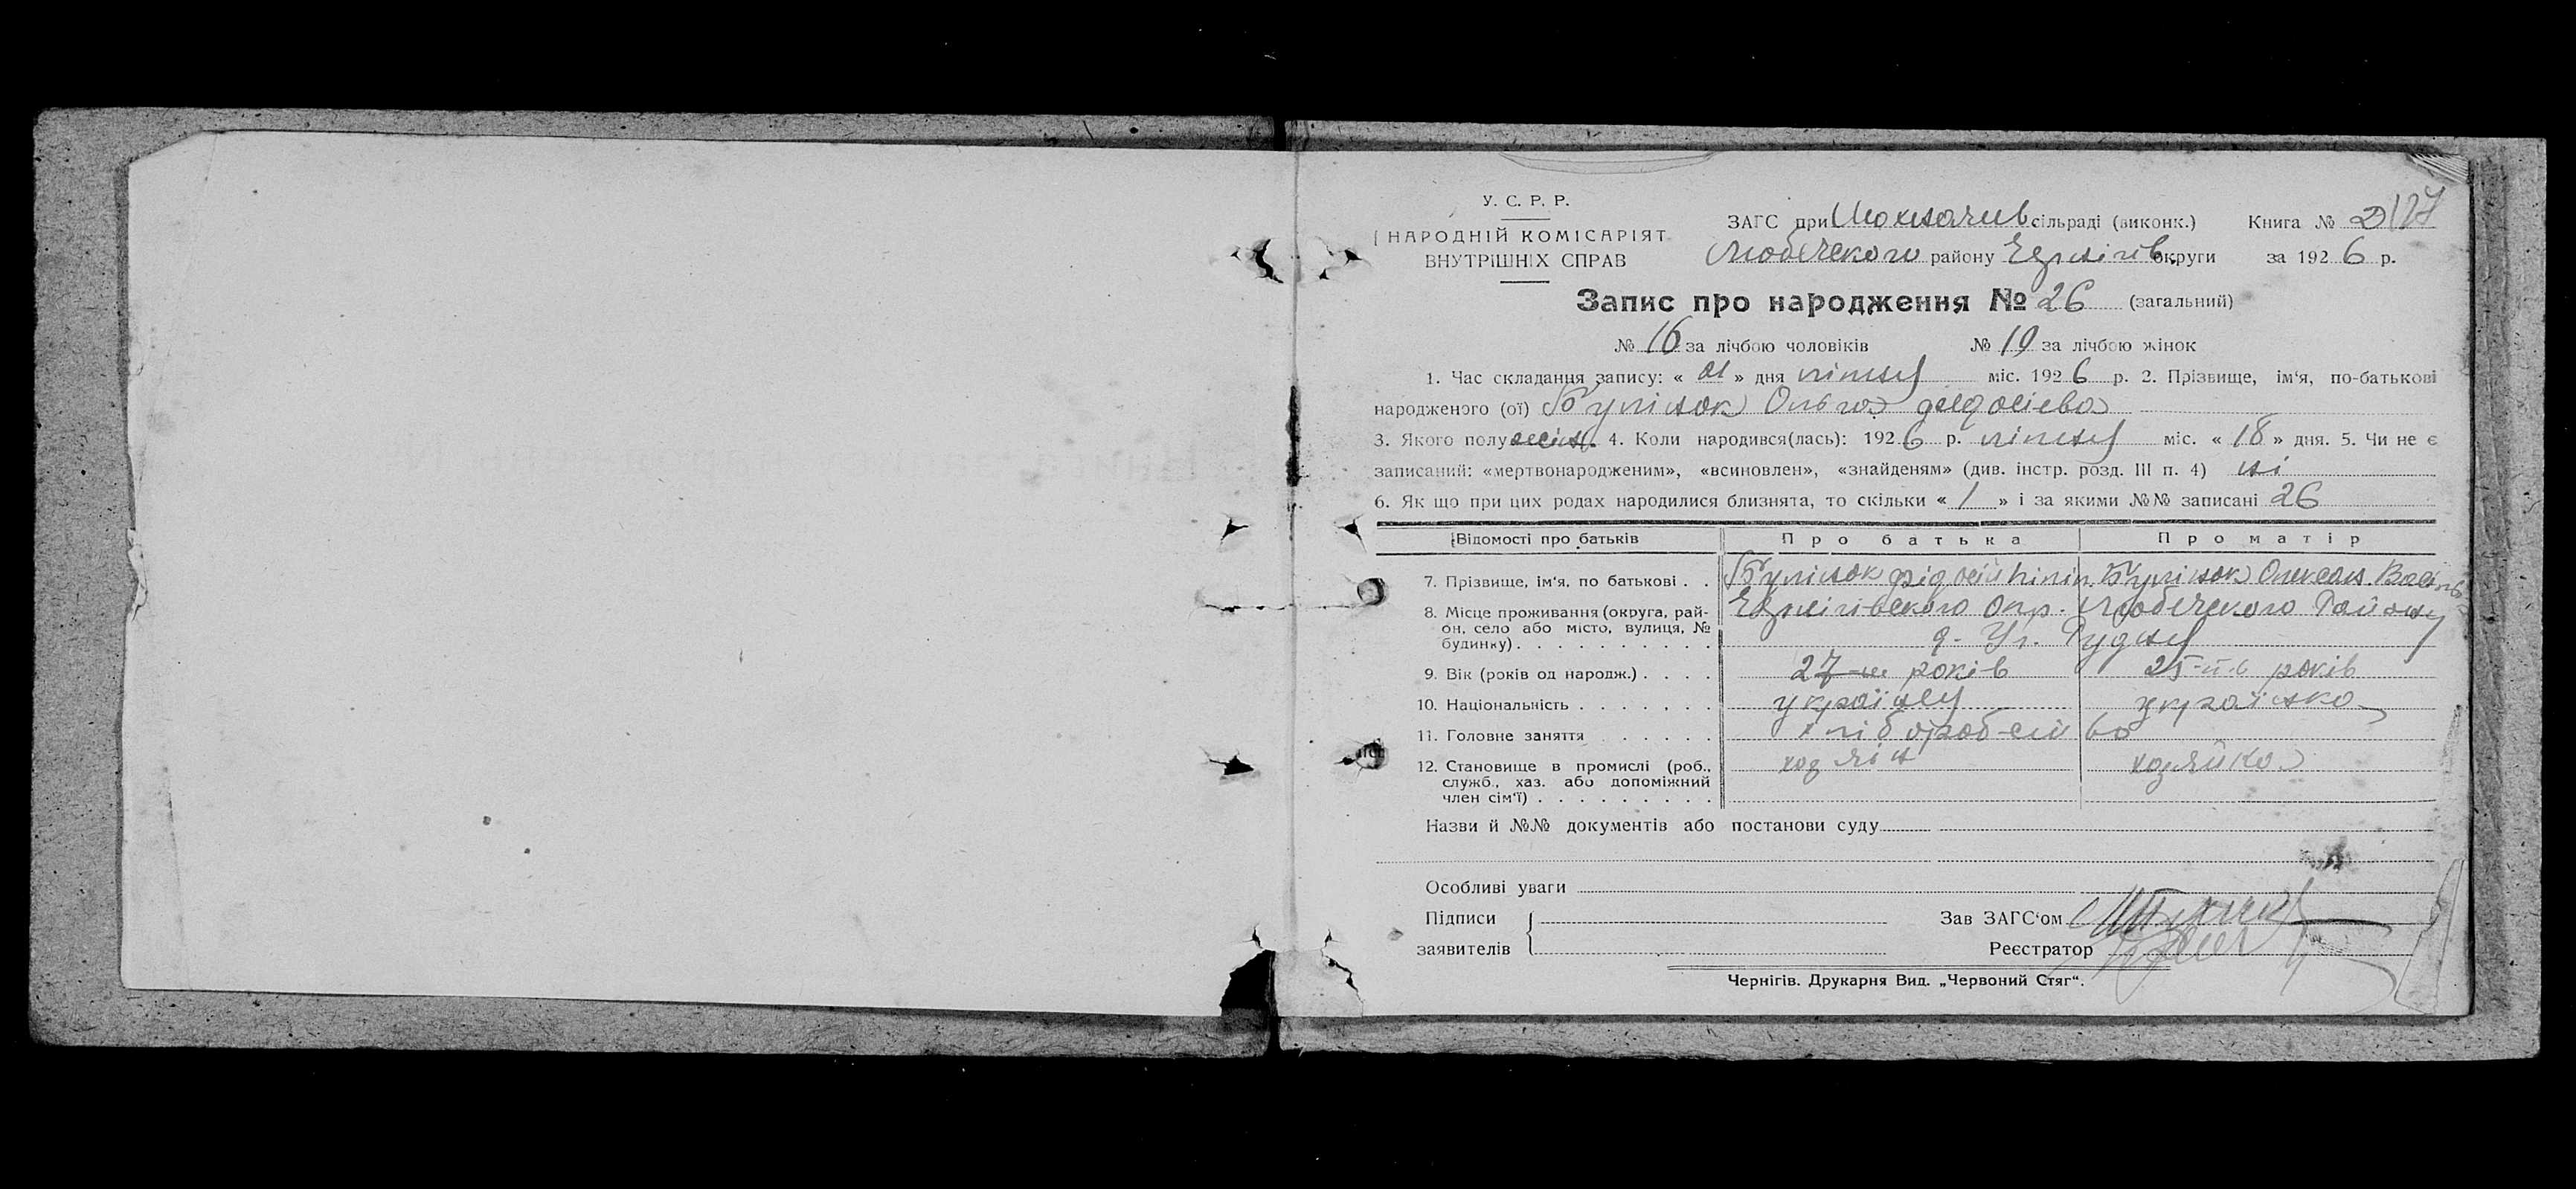 У. С. Р. Р.
НАРОДНІЙ КОМІСАРІЯТ
ВНУТРІШНІХ СПРАВ
ЗАГС при сільраді (виконк.) Книга № 2/27
Любечского району округи за 1926 р.
Запис про народження № 26 (загальний)
№ 16 за лічбою чоловіків № 10 за лічбою жінок
1. Час складання запису: « 21 » дня липня міс. 1926 р. 2. Прізвище, ім'я, по-батькові
народженого (ої) Ольга
3. Якого полу жін. 4. Коли народився(лась): 1926 р. липня міс. « 18 » дня. 5. Чи не є
записаний: «мертвонародженим», «всиновлен», «знайденям» (див. інстр. розд. III п. 4) ні
6. Як що при цих родах народилися близнята, то скільки « 1 » і за якими №№ записані 26
Відомості про батьків Про батька Про матір
7. Прізвище, ім'я, по батькові . .
8. Місце проживання (округа, рай- Окр. Любечского Району
он, село або місто, вулиця, №
будинку) . . . . . . . . . . Рудня
9. Вік (років од народж.) . . . . 27 років 25 років
10. Національність . . . . . . . українец українка
11. Головне заняття . . . . . хліборобство
12. Становище в промислі (роб., хозяін хозяйка
служб., хаз. або допоміжний
член сім'ї) . . . . . . . . .
Назви й №№ документів або постанови суду
Особливі уваги
Підписи Зав ЗАГС'ом
заявителів Реєстратор
Чернігів. Друкарня Вид. „Червоний Стяг“.